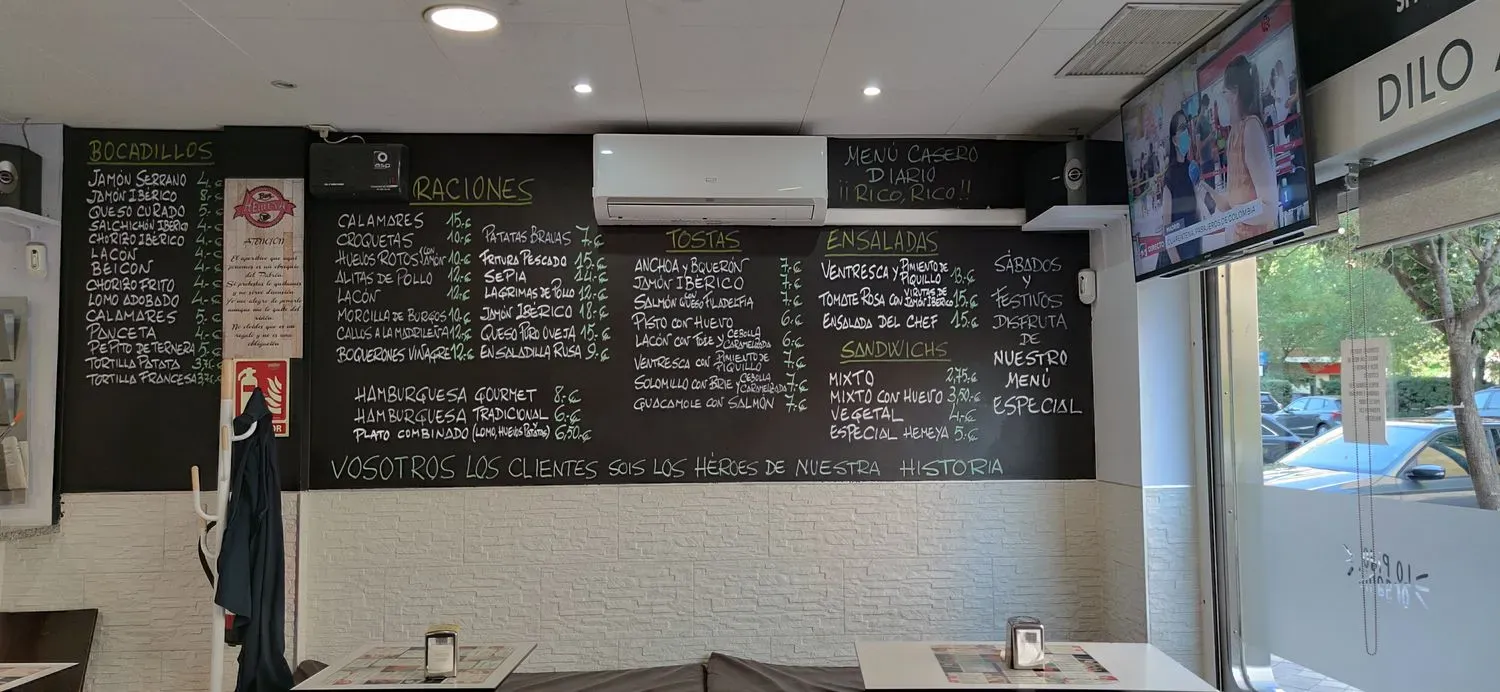 BOCADILLOS
JAMÓN SERRANO 4.-€
JAMÓN IBÉRICO 8.-€
QUESO CURADO 5.-€
SALCHICHÓN IBÉRICO 4.-€
CHORIZO IBÉRICO 4.-€
LACÓN 4.-€
BEICON 4.-€
CHORIZO FRITO 4.-€
LOMO ADOBADO 4.-€
CALAMARES 5.-€
PANCETA 4.-€
PEPITO DE TERNERA 5.-€
TORTILLA PATATA
TORTILLA FRANCESA
ATENCIÓN
RACIONES
CALAMARES 15.-€
CROQUETAS 10.-€
HUEVOS ROTOS CON JAMÓN 10.-€
ALITAS DE POLLO 12.-€
LACÓN 12.-€
MORCILLA DE BURGOS 10.-€
CALLOS A LA MADRILEÑA 12.-€
BOQUERONES VINAGRE 12.-€
PATATAS BRAVAS 7.-€
FRITURA PESCADO 15.-€
SEPIA 14.-€
LAGRIMAS DE POLLO 12.-€
JAMÓN IBÉRICO 18.-€
QUESO PURO OVEJA 15.-€
ENSALADILLA RUSA 9.-€
HAMBURGUESA GOURMET 8.-€
HAMBURGUESA TRADICIONAL 6.-€
PLATO COMBINADO (LOMO, HUEVOS, PATATAS) 6,50.-€
TOSTAS
ANCHOA Y BQUERÓN 7.-€
JAMÓN IBÉRICO 7.-€
SALMÓN QUESO FILADELFIA 7.-€
PISTO CON HUEVO 6.-€
LACÓN CON TOBE Y CEBOLLA CARAMELIZADA 6.-€
VENTRESCA CON PIMIENTO DE PIQUILLO 7.-€
SOLOMILLO CON BRIE Y CEBOLLA CARAMELIZADA 7.-€
GUACAMOLE CON SALMÓN 7.-€
MENÚ CASERO
DIARIO
¡¡RICO, RICO!!
ENSALADAS
VENTRESCA Y PIMIENTO DE PIQUILLO 13.-€
TOMATE ROSA CON VIRUTAS DE JAMÓN IBÉRICO 15.-€
ENSALADA DEL CHEF 15.-€
SANDWICHS
MIXTO 2,75.-€
MIXTO CON HUEVO 3,50.-€
VEGETAL 4.-€
ESPECIAL HEMEYA 5.-€
SÁBADOS
Y
FESTINOS
DISFRUTA
DE
NUESTRO
MENÚ
ESPECIAL
VOSOTROS LOS CLIENTES SOIS LOS HÉROES DE NUESTRA HISTORIA
MADRID
DIRECTO
CUARENTENA PASAJEROS DE COLOMBIA
DILO